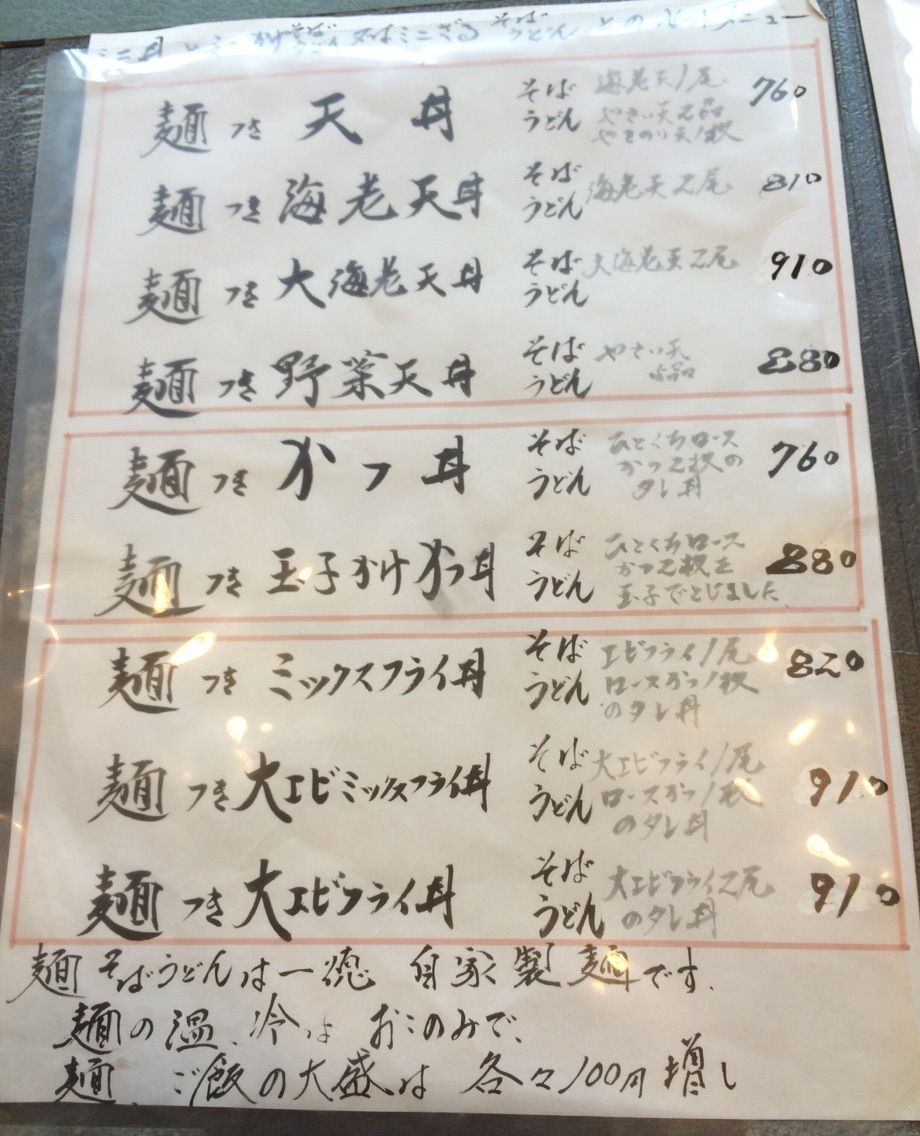 ミニ丼とミニかけそばうどん又はミニざるそばうどんとのセットメニュー
麺つき 天丼 そば うどん 海老天1尾 やさい天2品 やきのり天1枚 760
麺つき 海老天丼 そば うどん 海老天2尾 810
麺つき 大海老天丼 そば うどん 大海老天2尾 910
麺つき 野菜天丼 そば うどん やさい天 5品 880
麺つき かつ丼 そば うどん ひとくちロース かつ2枚の タレ丼 760
麺つき 玉子かけかつ丼 そば うどん ひとくちロース かつ2枚を 玉子でとじました 880
麺つき ミックスフライ丼 そば うどん エビフライ1尾 ロースかつ1枚 のタレ丼 820
麺つき 大エビミックスフライ丼 そば うどん 大エビフライ1尾 ロースかつ1枚 のタレ丼 910
麺つき 大エビフライ丼 そば うどん 大エビフライ2尾 のタレ丼 910
麺 そばうどんは一徳 自家製麺です.
麺の温、冷は おこのみで、
麺、ご飯の大盛は 各々100円増し